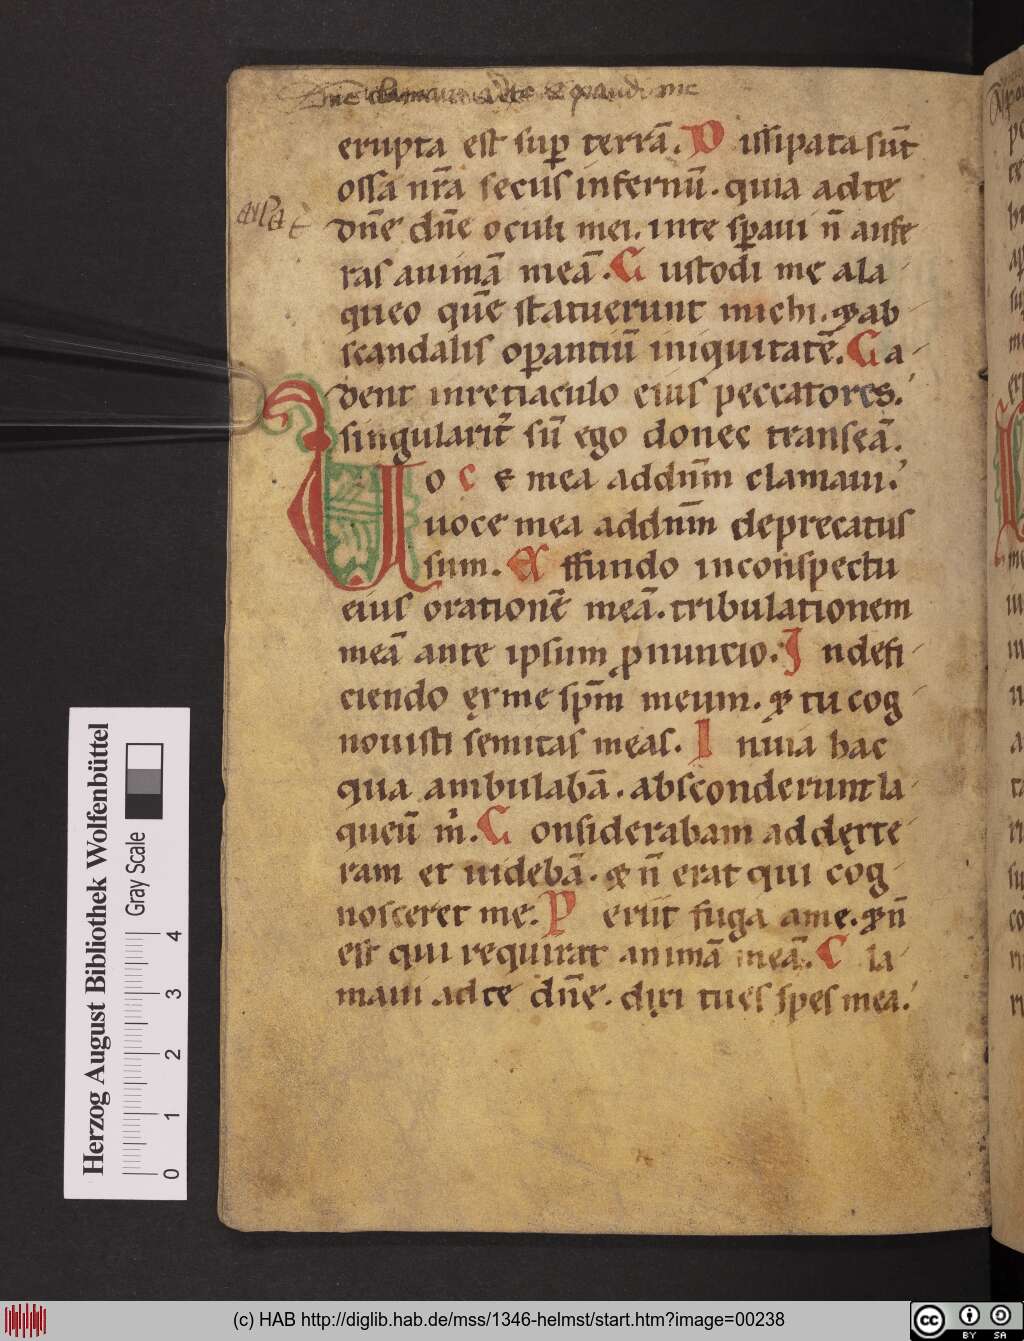 Dne clamaui ad te exaudi me
erupta est sup terrā. Dissipata sūt
ossa nr̄a secus infernū. quia ad te
dn̄e dn̄e oculi mei. in te sp̱aui n̄ aufe
ras animā meā. Custodi me a la
queo quē statuerunt michi. & ab
scandalis op̱antiū iniquitatē. Ca
dent in retiaculo eius peccatores.
singularit̄ sū ego donec transeā.
Uoce mea ad dn̄m clamaui.
uoce mea ad dn̄m deprecatus
sum. Effundo in conspectu
eius orationē meā. tribulationem
meā ante ipsum ꝓnuncio. In defi
ciendo ęx me sp̄m meum. & tu cog
nouisti semitas meas. In uia hac
qua ambulabā. absconderunt la
queū m̄. Considerabam ad dęxte
ram et uidebā. & n̄ erat qui cog
nosceret me. Periit fuga a me. & n̄
est qui requirat animā meā. Cla
maui ad te dn̄e. dixi tu es spes mea.
Herzog August Bibliothek Wolfenbüttel
Gray Scale
0 1 2 3 4
(c) HAB http://diglib.hab.de/mss/1346-helmst/start.htm?image=00238
cc BY SA